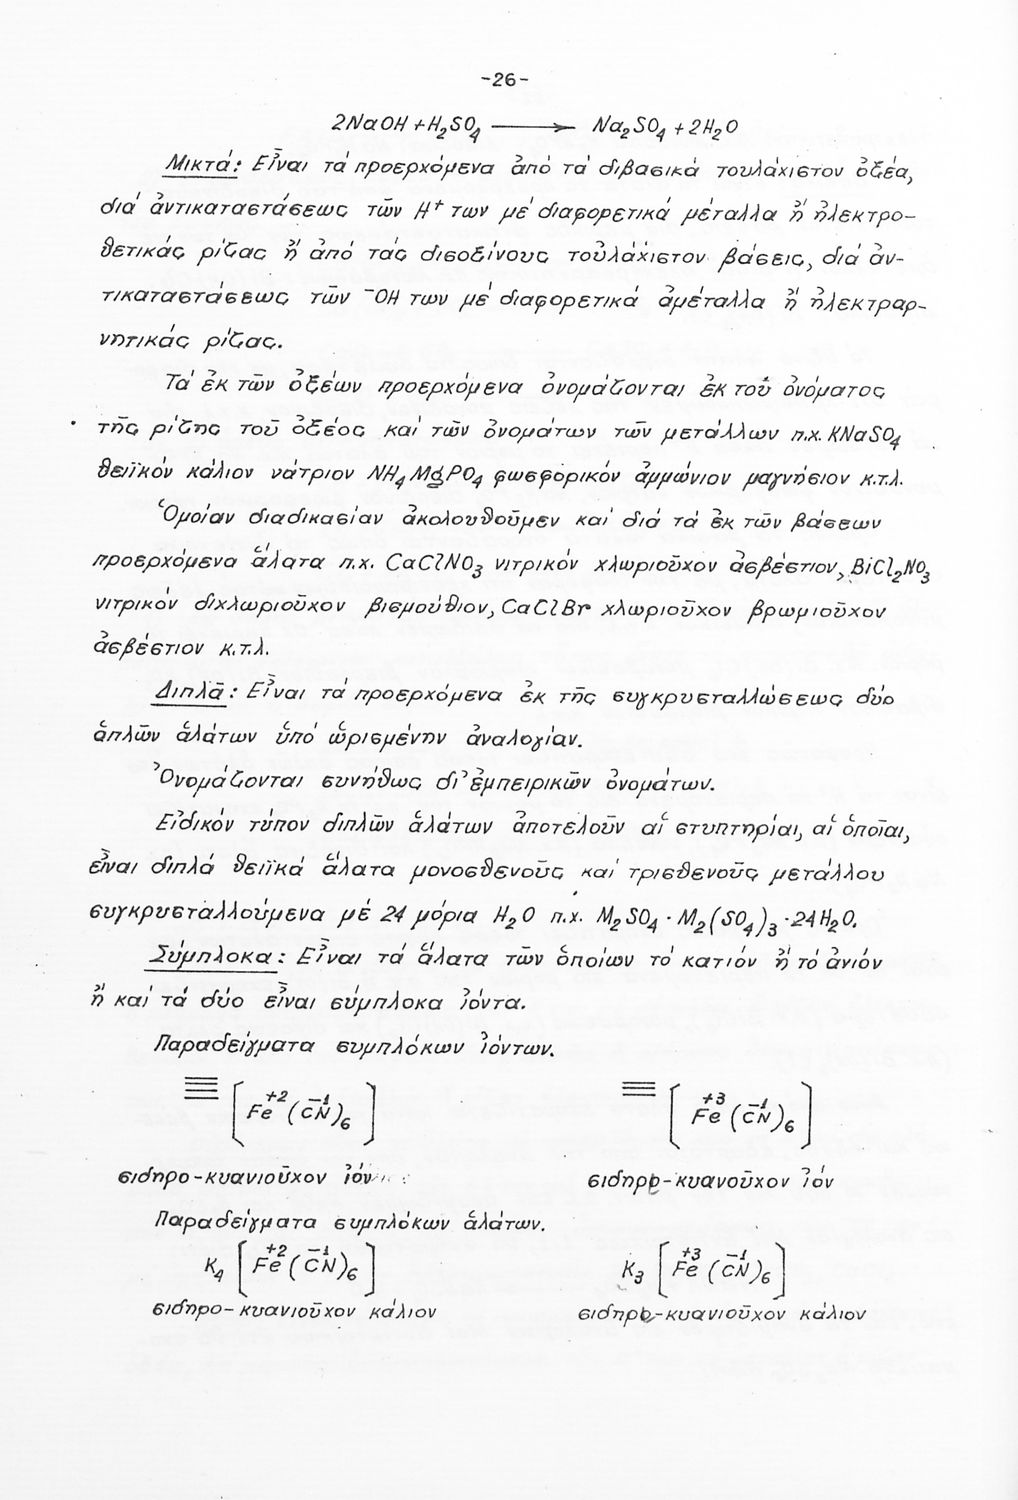 -26-
2NaOH + H₂SO₄ ⟶ Na₂SO₄ + 2H₂O
Μικτά: Εἶναι τά προερχόμενα ἀπό τά διβασικά τουλάχιστον ὀξέα,
διά ἀντικαταστάσεως τῶν H⁺ των μέ διαφορετικά μέταλλα ἤ ἠλεκτρο-
θετικάς ρίζας ἤ ἀπό τάς δισοξίνους τοὐλάχιστον βάσεις, διά ἀν-
τικαταστάσεως τῶν ⁻OH των μέ διαφορετικά ἀμέταλλα ἤ ἠλεκτραρ-
νητικάς ρίζας.
Τά ἐκ τῶν ὀξέων προερχόμενα ὀνομάζονται ἐκ τοῦ ὀνόματος
τῆς ρίζης τοῦ ὀξέος καί τῶν ὀνομάτων τῶν μετάλλων π.χ. KNaSO₄
θειϊκόν κάλιον νάτριον NH₄MgPO₄ φωσφορικόν ἀμμώνιον μαγνήσιον κ.τ.λ.
Ὁμοίαν διαδικασίαν ἀκολουθοῦμεν καί διά τά ἐκ τῶν βάσεων
προερχόμενα ἅλατα π.χ. CaClNO₃ νιτρικόν χλωριοῦχον ἀσβέστιον, BiCl₂NO₃
νιτρικόν διχλωριοῦχον βισμούθιον, CaClBr χλωριοῦχον βρωμιοῦχον
ἀσβέστιον κ.τ.λ.
Διπλᾶ: Εἶναι τά προερχόμενα ἐκ τῆς συγκρυσταλλώσεως δύο
ἁπλῶν ἁλάτων ὑπό ὡρισμένην ἀναλογίαν.
Ὀνομάζονται συνήθως δι' ἐμπειρικῶν ὀνομάτων.
Εἰδικόν τύπον διπλῶν ἁλάτων ἀποτελοῦν αἱ στυπτηρίαι, αἱ ὁποῖαι,
εἶναι διπλά θειϊκά ἅλατα μονοσθενοῦς καί τρισθενοῦς μετάλλου
συγκρυσταλλούμενα μέ 24 μόρια H₂O π.χ. M₂SO₄ · M₂(SO₄)₃ · 24H₂O.
Σύμπλοκα: Εἶναι τά ἅλατα τῶν ὁποίων τό κατιόν ἤ τό ἀνιόν
ἤ καί τά δύο εἶναι σύμπλοκα ἰόντα.
Παραδείγματα συμπλόκων ἰόντων.
≣ [Fe⁺² (CN⁻¹)₆] ≡ [Fe⁺³ (CN⁻¹)₆]
σιδηρο-κυανιοῦχον ἰόν σιδηρι-κυανοῦχον ἰόν
Παραδείγματα συμπλόκων ἁλάτων.
K₄ [Fe⁺² (CN⁻¹)₆] K₃ [Fe⁺³ (CN⁻¹)₆]
σιδηρο-κυανιοῦχον κάλιον σιδηρι-κυανιοῦχον κάλιον